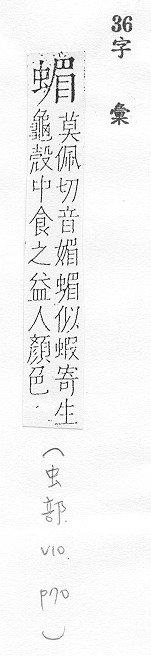 36字彙
蝞莫佩切音媚蝞似蝦寄生
龜殼中食之益人顏色
(虫部. V10. P70)